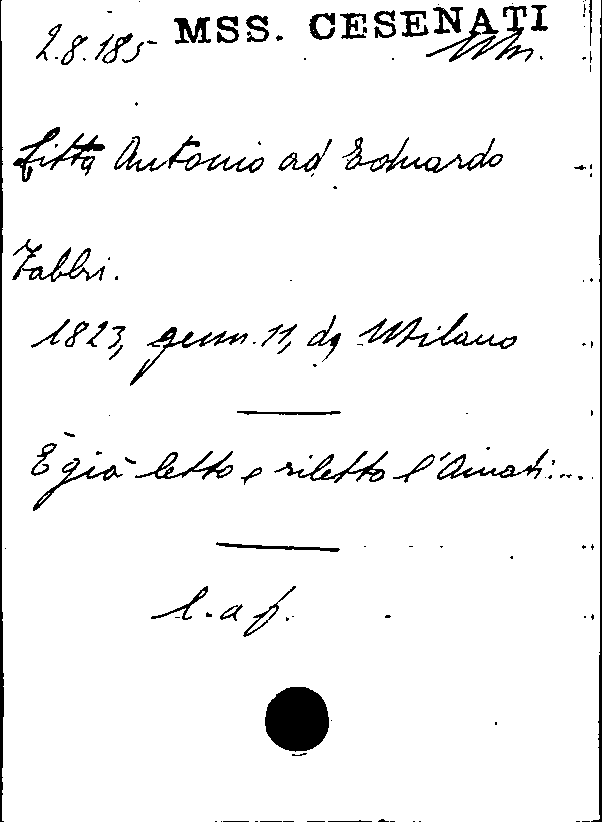 MSS. CESENATI
2.8.185
Litta Antonio ad Eduardo
Fabbri.
1823, genn. 11, da Milano
È già letto e riletto l'Amati....
l. a f.